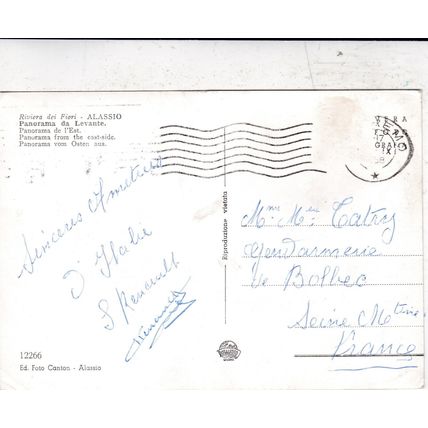 Riviera dei Fiori - ALASSIO
Panorama da Levante.
Panorama de l'Est.
Panorama from the east-side.
Panorama vom Osten aus.
VERA
FOTOGRAFIA
Sincères Amitiés
D'Italie
S Renault
Riproduzione vietata
Mme Mer Tatry
Gendarmerie
de Bolbec
Seine Mtime
France
12266
Ed. Foto Canton - Alassio